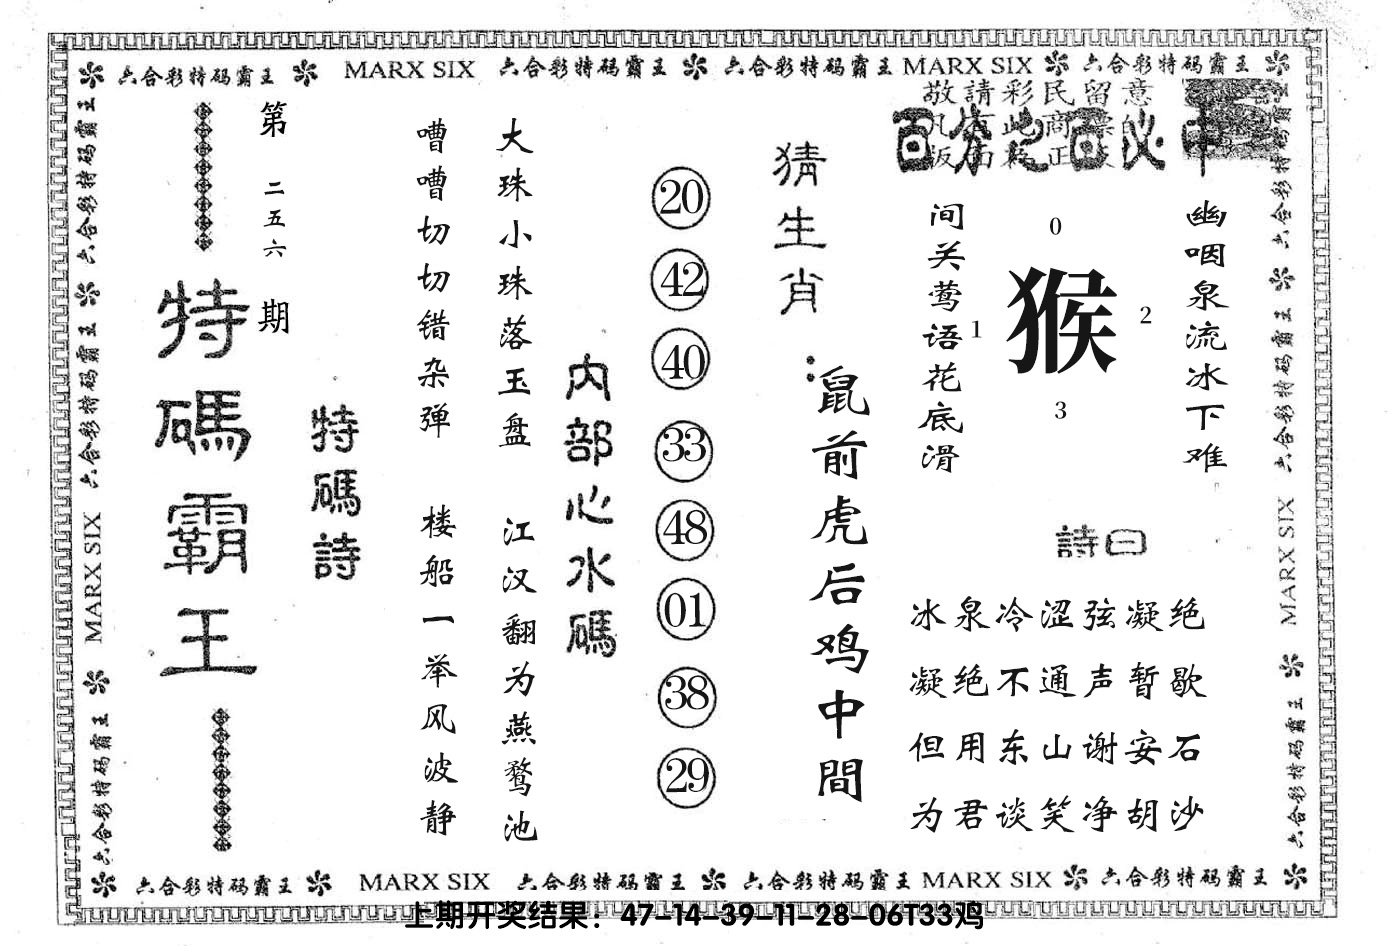 六合彩特码霸王 MARX SIX 六合彩特码霸王 六合彩特码霸王 MARX SIX 六合彩特码霸王
敬請彩民留意
百分之百必中
幽咽泉流冰下难
间关莺语花底滑
0
1
猴
2
3
詩曰
冰泉冷涩弦凝绝
凝绝不通声暂歇
但用东山谢安石
为君谈笑净胡沙
猜生肖:
鼠前虎后鸡中間
20
42
40
33
48
01
38
29
内部心水碼
大珠小珠落玉盘 江汉翻为燕鹜池
嘈嘈切切错杂弹 楼船一举风波静
特碼詩
第二五六期
特碼霸王
六合彩特码霸王 六合彩特码霸王 MARX SIX 六合彩特码霸王
六合彩特码霸王 六合彩特码霸王 MARX SIX 六合彩特码霸王
六合彩特码霸王 MARX SIX 六合彩特码霸王 六合彩特码霸王 MARX SIX 六合彩特码霸王
上期开奖结果：47-14-39-11-28-06T33鸡